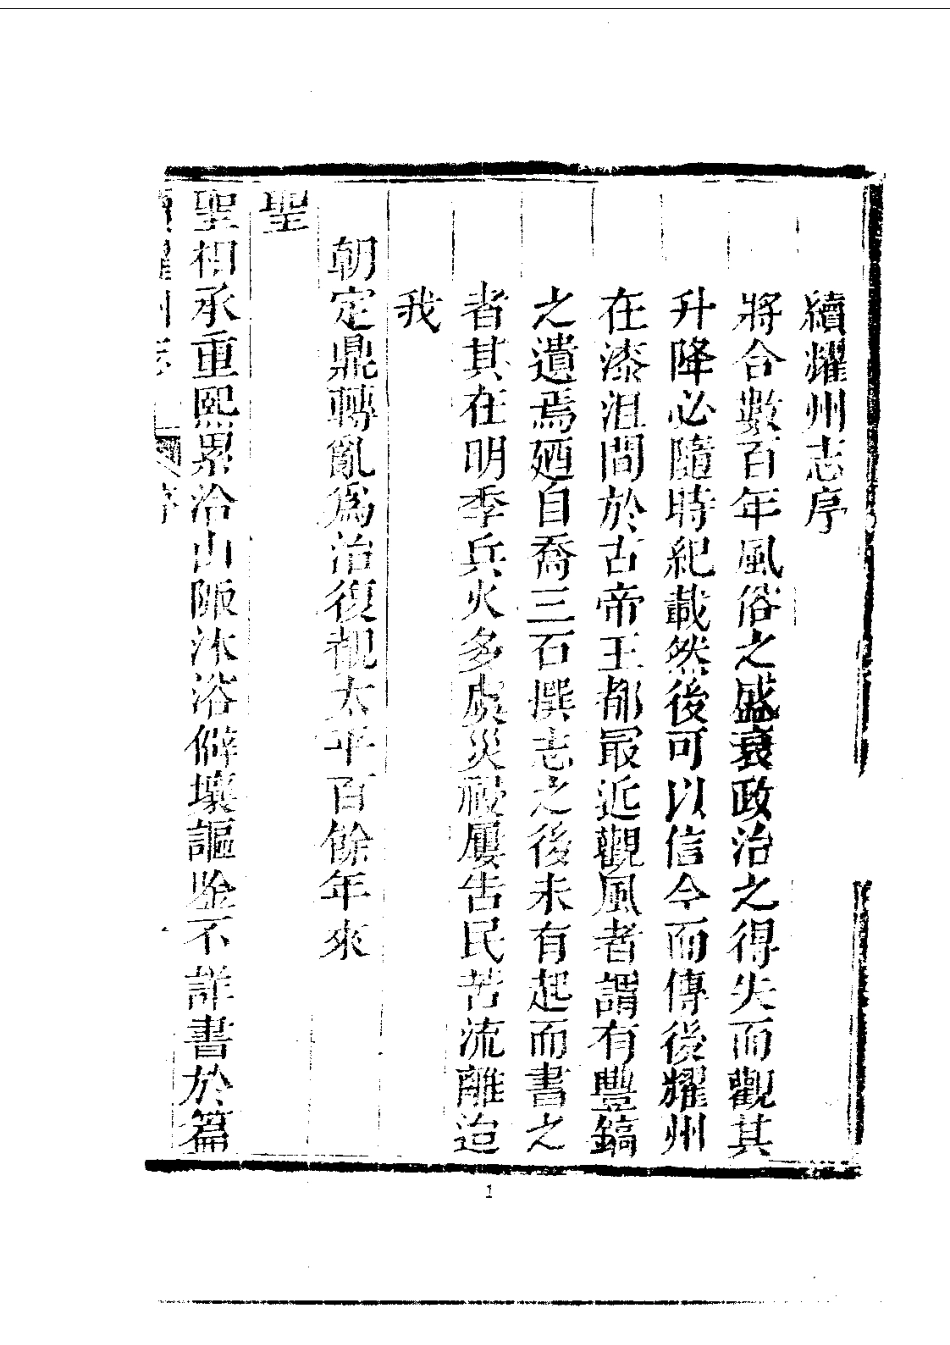 續耀州志序
將合數百年風俗之盛衰政治之得失而觀其
升降必隨時紀載然後可以信今而傳後耀州
在漆沮間於古帝王都最近觀風者謂有豐鎬
之遺焉廼自喬三石撰志之後未有起而書之
者其在明季兵火多虞災祲屢告民苦流離迨
我
朝定鼎轉亂爲治復覩太平百餘年來
聖
聖相承重熙累洽山陬沐浴僻壤謳吟不詳書於篇
續耀州志 序
1